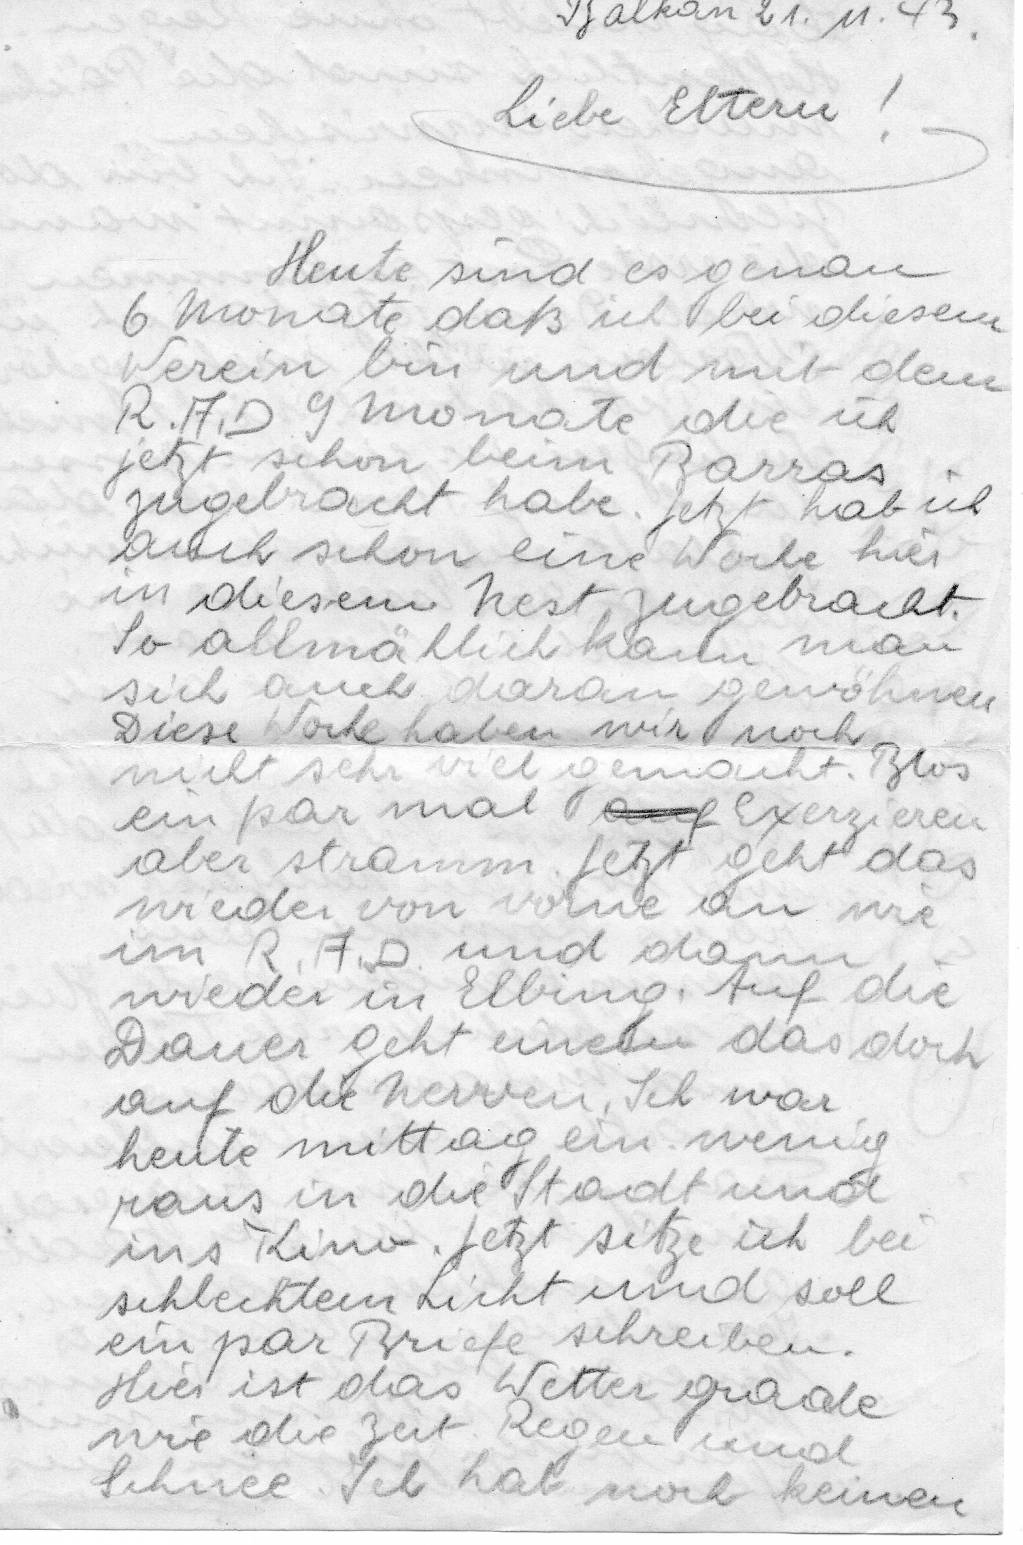 Balkan 21. 11. 43.
Liebe Eltern!
Heute sind es genau
6 Monate daß ich bei diesem
Verein bin und mit dem
R.A.D 9 Monate die ich
jetzt schon beim Barras
zugebracht habe. Jetzt hab ich
auch schon eine Woche hier
in diesem Nest zugebracht.
So allmählich kann man
sich auch daran gewöhnen
Diese Woche haben wir noch
nicht sehr viel gemacht. Blos
ein par mal Exerzieren
aber stramm. Jetzt geht das
wieder von vorne an wie
im R.A.D. und dann
wieder in Elbing. Auf die
Dauer geht einem das doch
auf die Nerven. Ich war
heute mittag ein wenig
raus in die Stadt und
ins Kino. Jetzt sitze ich bei
schlechtem Licht und soll
ein par Briefe schreiben.
Hier ist das Wetter grade
wie die Zeit Regen und
Schnee. Ich hab noch keinen